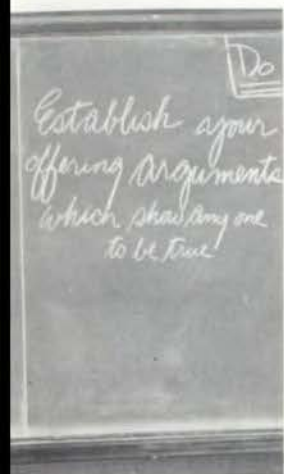 Do
Establish your
offering arguments
which show any one
to be true